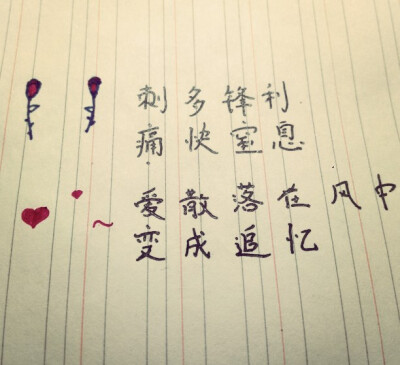 刺 多 锋 利
痛 快 室 息
爱 散 落 在 风 中
变 成 追 忆